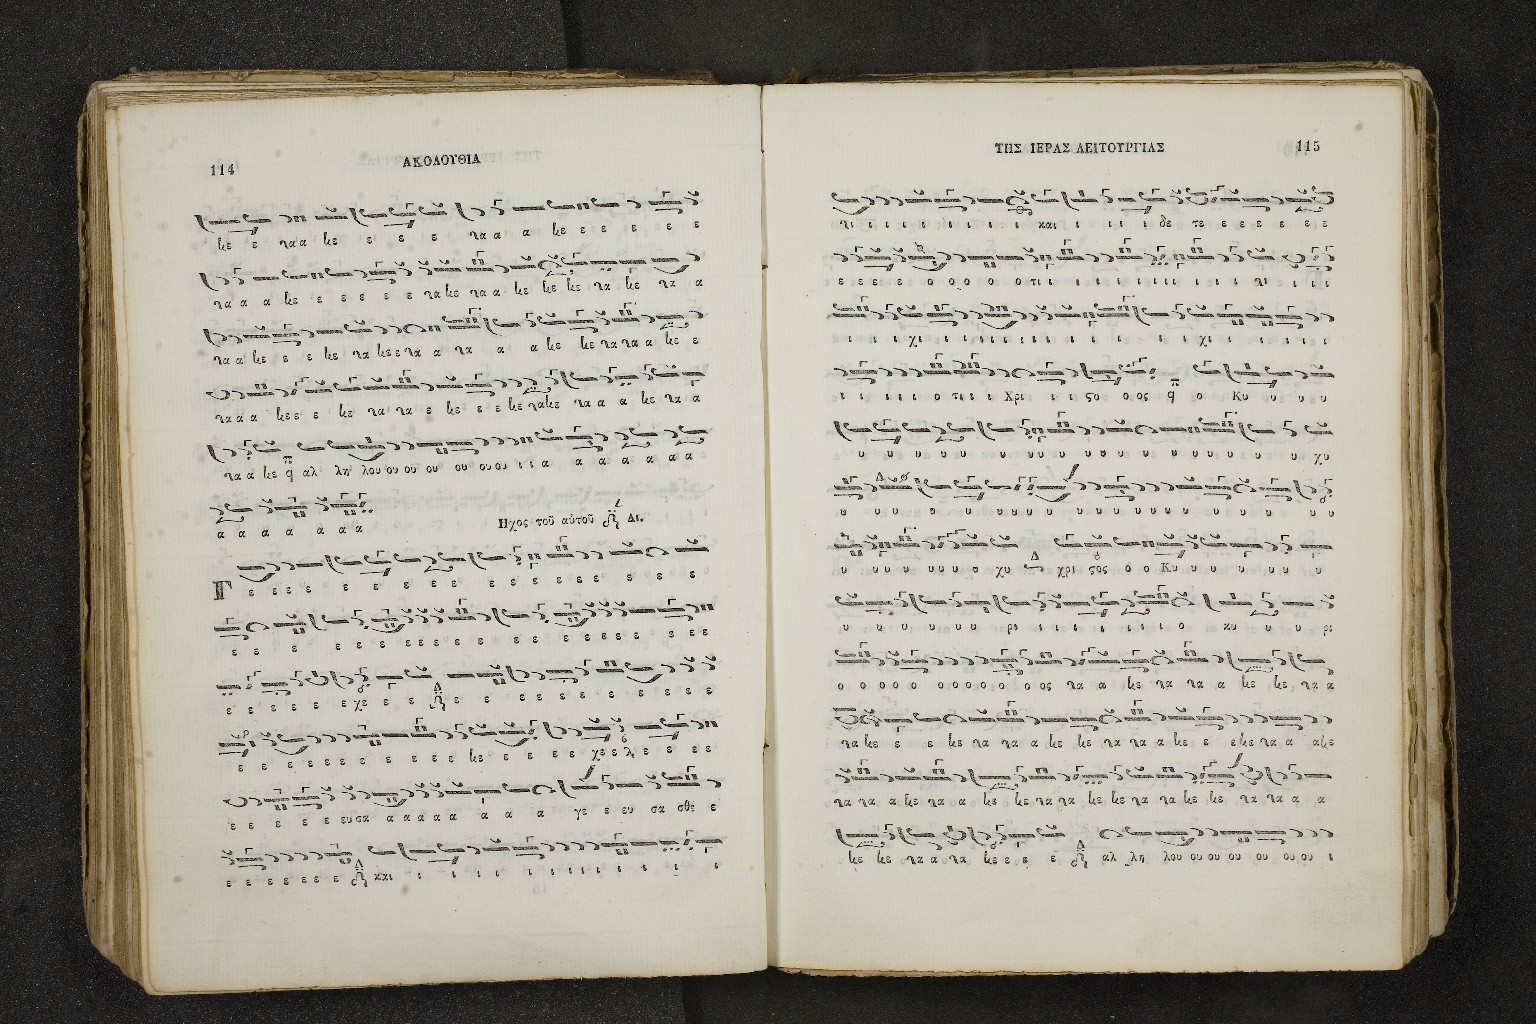 114 ΑΚΟΛΟΥΘΙΑ
κε ε ναα κε ε ε ε να α α κε ε ε ε ε ε
να α α κε ε ε ε ε ε να κε να α κε κε κε να κε να α
να α κε ε ε κε να κε ε να α να α α κε κε να να α κε ε
να α α κε ε ε κε να να ε κε ε ε κε να κε να α α κε να α
να α κε αλ λη λου ου ου ου ου ου ου ι ι α α α α α α α
α α α α α α α
Ηχος τοῦ αὐτοῦ Δι.
Γ ε ε ε ε ε ε ε ε ε ε ε ε ε ε ε ε ε ε ε
ε ε ε ε ε ε ε ε ε ε ε ε ε ε ε ε ε ε ε
ε ε ε ε ε ε χε ε ε ε ε ε ε ε ε ε ε ε ε ε
ε ε ε ε ε ε ε ε ε ε ε κε ε ε ε ε χε ε ε ε ε ε
ε ε ε ε ε ε ευ σα α α α α α α α α γε ε ευ σα σθε ε
ε ε ε ε ε ε ε και ι ι ι ι ι ι ι ι ι ι ι ι ι ι
ΤΗΣ ΙΕΡΑΣ ΛΕΙΤΟΥΡΓΙΑΣ 115
νι ι ι ι ι ι ι ι ι και ι ι ι ι δε τε ε ε ε ε ε ε
ε ε ε ε ε ο ο ο ο ο τι ι ι ι ι ι ι ι ι ι νι ι ι ι
ι ι ι χι ι ι ι ι ι ι ι ι ι ι ι ι χι ι ι ι ι ι
ι ι ι ι ι ο τι ι ι Χρι ι ι ςο ο ος ο Κυ υ υ υ
υ υ υ υ υ υ υ υ υ υ υ υ υ υ υ υ υ υ χυ
υ υ υ ο υ υ υ υ υ υ υ υ υ υ υ υ υ υ υ υ
υ υ υ υ υ υ υ ο χυ χρι ςος ο ο Κυ υ υ υ υ υ υ
υ υ υ υ υ υ υ ρι ι ι ι ι ι ι ι ο κυ υ υ ρι
ο ο ο ο ο ο ο ο ο ο ο ος να α κε να να α κε κε να α
να κε ε ε κε να να α κε κε να να α κε ε ε κε να α α κε
να να α κε να α κε κε να να κε κε να να κε κε να να α α
κε κε να α να κε ε ε ε αλ λη λου ου ου ου ου ου ου ι